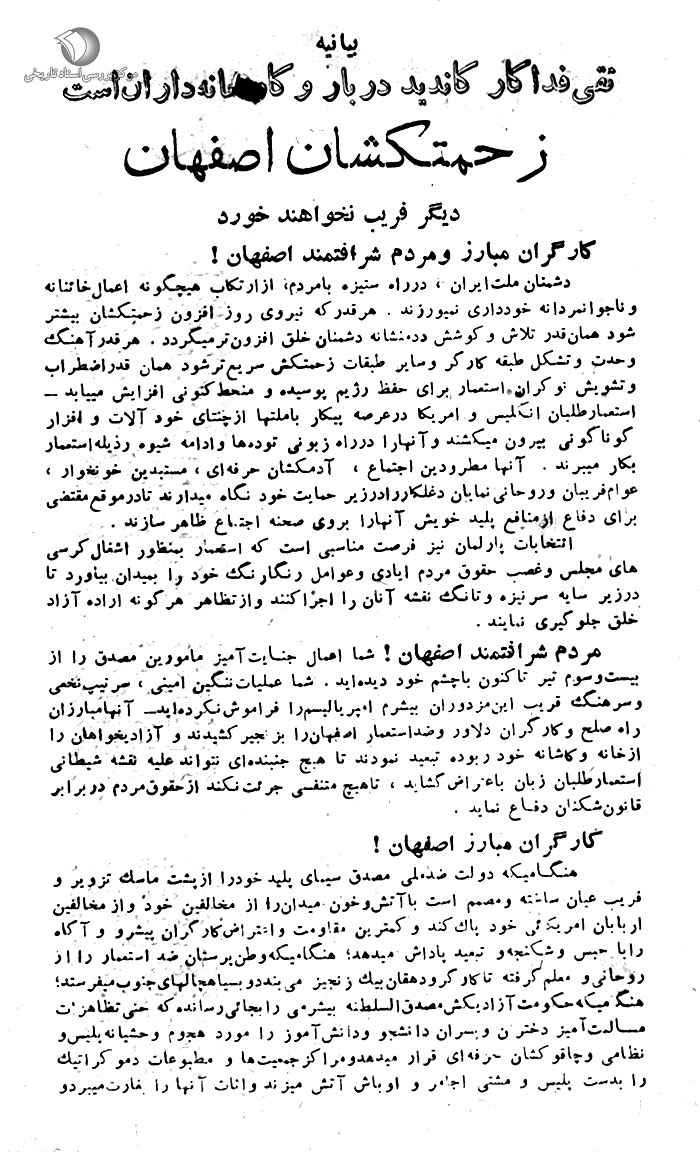 مرکز بررسی اسناد تاریخی
بیانیه
تقی فداکار کاندید دربار و کارخانه‌داران است
زحمتکشان اصفهان
دیگر فریب نخواهند خورد
کارگران مبارز ومردم شرافتمند اصفهان !
دشمنان ملت ایران ، درراه ستیزه بامردم، ازارتکاب هیچگونه اعمال خائنانه
وناجوانمردانه خودداری نمیورزند . هرقدرکه نیروی روز افزون زحمتکشان بیشتر
شود همان‌قدر تلاش وکوشش ددمنشانه دشمنان خلق افزون‌ترمیگردد . هرقدرآهنگ
وحدت وتشکل طبقه کارگر وسایر طبقات زحمتکش سریع‌ترشود همان قدراضطراب
وتشویش نوکران استعمار برای حفظ رژیم پوسیده و منحط کنونی افزایش مییابد –
استعمارطلبان انگلیس و امریکا درعرصه پیکار باملتها ازچنتای خود آلات و افزار
گوناگونی بیرون میکشند وآنهارا درراه زبونی توده‌ها وادامه شیوه رذیله‌استعمار
بکار میبرند . آنها مطرودین اجتماع ، آدمکشان حرفه‌ای ، مستبدین خونخوار ،
عوام‌فریبان وروحانی‌نمایان دغلکاررادرزیر حمایت خود نگاه میدارند تادرموقع‌مقتضی
برای دفاع ازمنافع پلید خویش آنهارا بروی صحنه اجتماع ظاهر سازند .
انتخابات پارلمان نیز فرصت مناسبی است که استعمار بمنظور اشغال‌کرسی
های مجلس وغصب حقوق مردم ایادی وعوامل رنگارنگ خود را بمیدان بیاورد تا
درزیر سایه سرنیزه وتانگ نقشه آنان را اجراکنند وازتظاهر هرگونه اراده آزاد
خلق جلوگیری نمایند .
مردم شرافتمند اصفهان ! شما اعمال جنایت‌آمیز مامورین مصدق را از
بیست‌وسوم تیر تاکنون باچشم خود دیده‌اید . شما عملیات‌ننگین امینی ، سرتیپ‌نخعی
وسرهنگ قریب این‌مزدوران بیشرم امپریالیسم‌را فراموش‌نکرده‌اید– آنهامبارزان
راه صلح وکارگران دلاور وضداستعمار اصفهان‌را بزنجیرکشیدند و آزادیخواهان را
ازخانه وکاشانه خود ربوده تبعید نمودند تا هیچ جنبنده‌ای نتواند علیه نقشه شیطانی
استعمارطلبان زبان باعتراض‌گشاید ، تاهیچ متنفسی جرئت‌نکند ازحقوق‌مردم دربرابر
قانون‌شکنان دفاع نماید .
کارگران مبارز اصفهان !
هنگامیکه دولت ضدملی مصدق سیمای پلید خودرا ازپشت ماسک تزویر و
فریب عیان ساخته و مصمم است باآتش‌وخون میدان‌را از مخالفین خود وازمخالفین
اربابان امریکائی خود پاک‌کند و کمترین مقاومت واعتراض‌کارگران پیشرو و آگاه
رابا حبس وشکنجه‌و تبعید پاداش میدهد؛ هنگامیکه‌وطن‌پرستان ضد استعمار را از
روحانی‌و معلم‌گرفته تاکارگرودهقان‌بیک زنجیر می‌بنددوبسیاهچالهای‌جنوب‌میفرستد؛
هنگامیکه‌حکومت‌آزادیکش‌مصدق‌السلطنه بیشرمی‌را‌بجائی‌رسانده‌که حتی‌تظاهرات
مسالمت‌آمیز دختران وپسران دانشجو ودانش‌آموز را مورد هجوم وحشیانه‌پلیس‌و
نظامی وچاقوکشان حرفه‌ای قرار میدهدومراکزجمعیت‌ها و مطبوعات دموکراتیک
را بدست پلیس و مشتی اجامر و اوباش آتش میزند واثاث آنها را بغارت‌میبردو